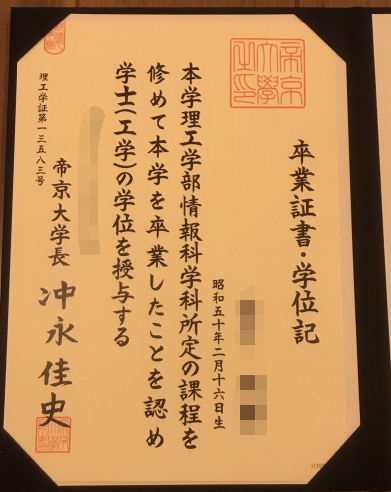 卒業証書・学位記
昭和五十年二月十六日生
本学理工学部情報科学科所定の課程を
修めて本学を卒業したことを認め
学士(工学)の学位を授与する
帝京大学長 冲永佳史
理工学証第一三五八三号
帝京大学之印